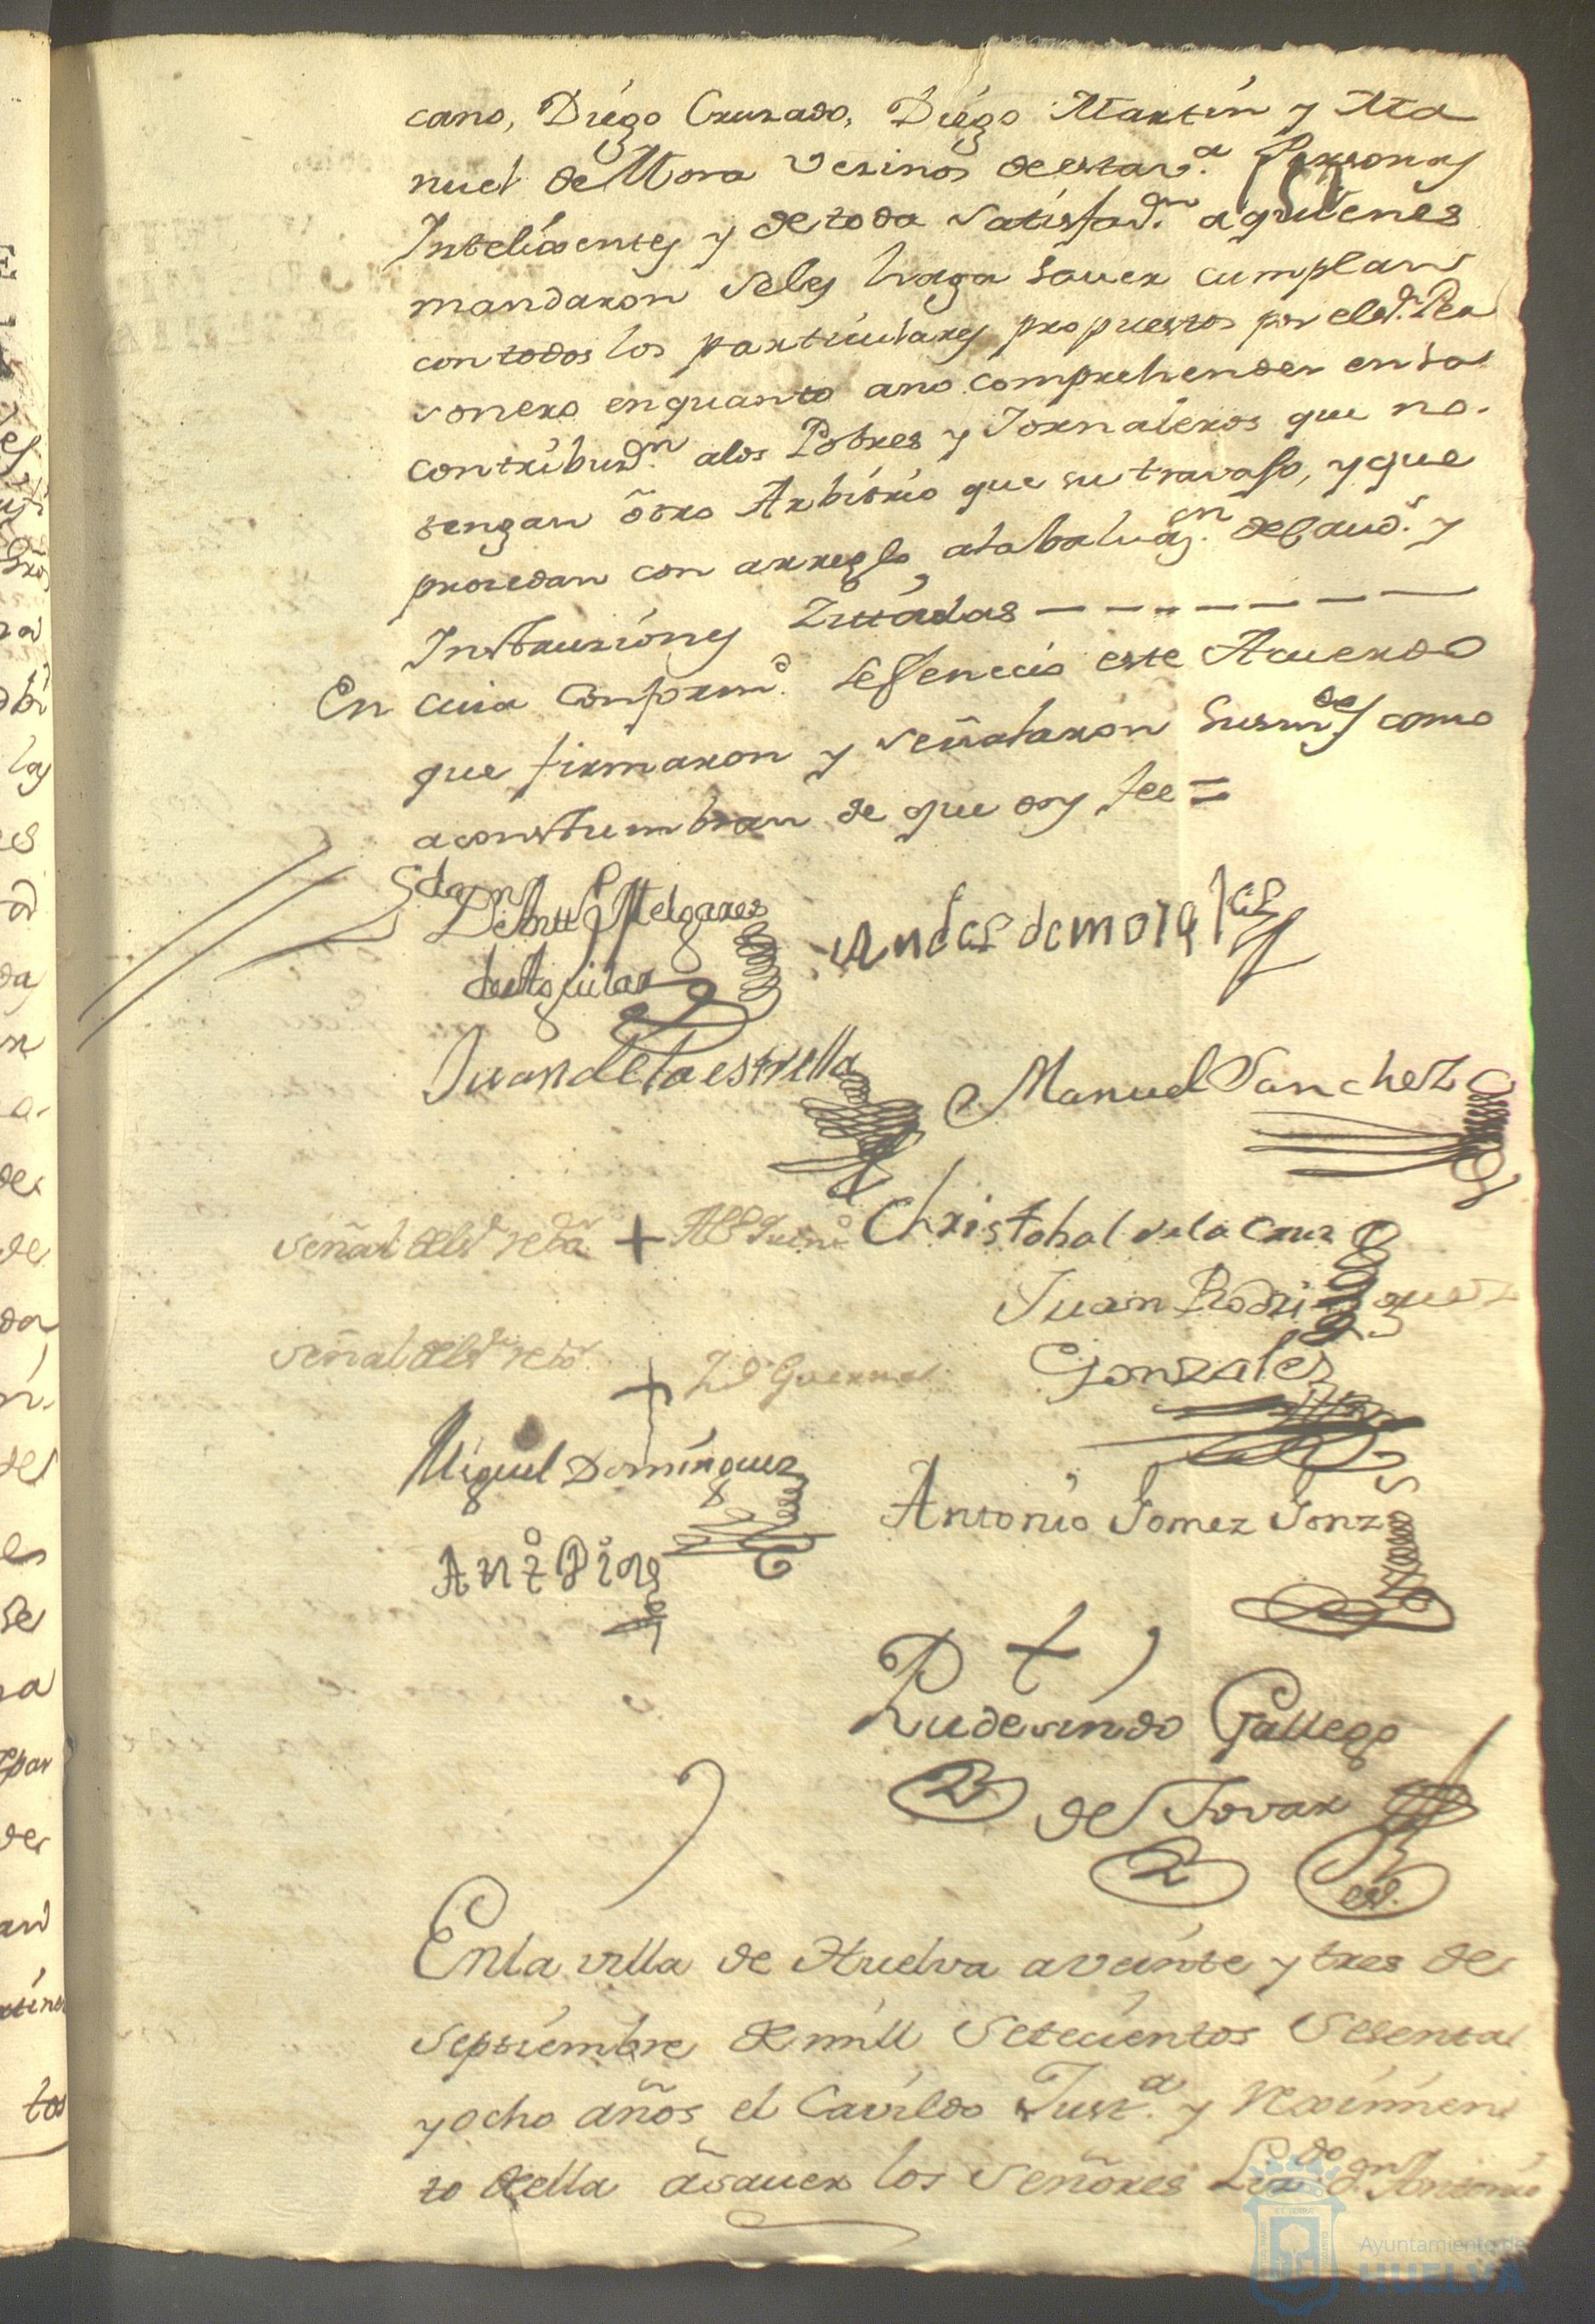 cano, Diego Cruzado, Diego Martin y Ma
nuel de Mora Vezinos destav.ª Personas
Intelixentes y detoda satisfaz.n aquienes
mandaron seles haga saver cumplan
contodos los particulares propuestos por elsd.r Per
sonero enquanto ano comprehender enla
contribuz.n alos Pobres y Jornaleros que no
tengan õtro Arbitrio que su travaso, y que
prozedan con arreglo alabaluaz.n
Instruziones Zittadas — — — — — — —
En cuia Conform.d seffenecio este Acuerdo
que firmaron y señalaron susm.des como
aconstumbran de que doy fee =
Melgarejo
de Aguilar
Andes de mora
Juan de la estrella
Manuel Sanchez
señal + Christobal dela Cruz
Juan Rodriguez
señal + Gonzales
Miguel Dominguez
Antonio Gomez Gonz.s
Ant.º
Rudesindo Gallego
de Tovar
Enla villa de Huelva aveinte y tres de
septiembre demill setecientos sesenta
yocho años el Cavildo Just.ª y Reximien
to della ãsaver los señores Liz.do d.n Antonio
Ayuntamiento de
HUELVA